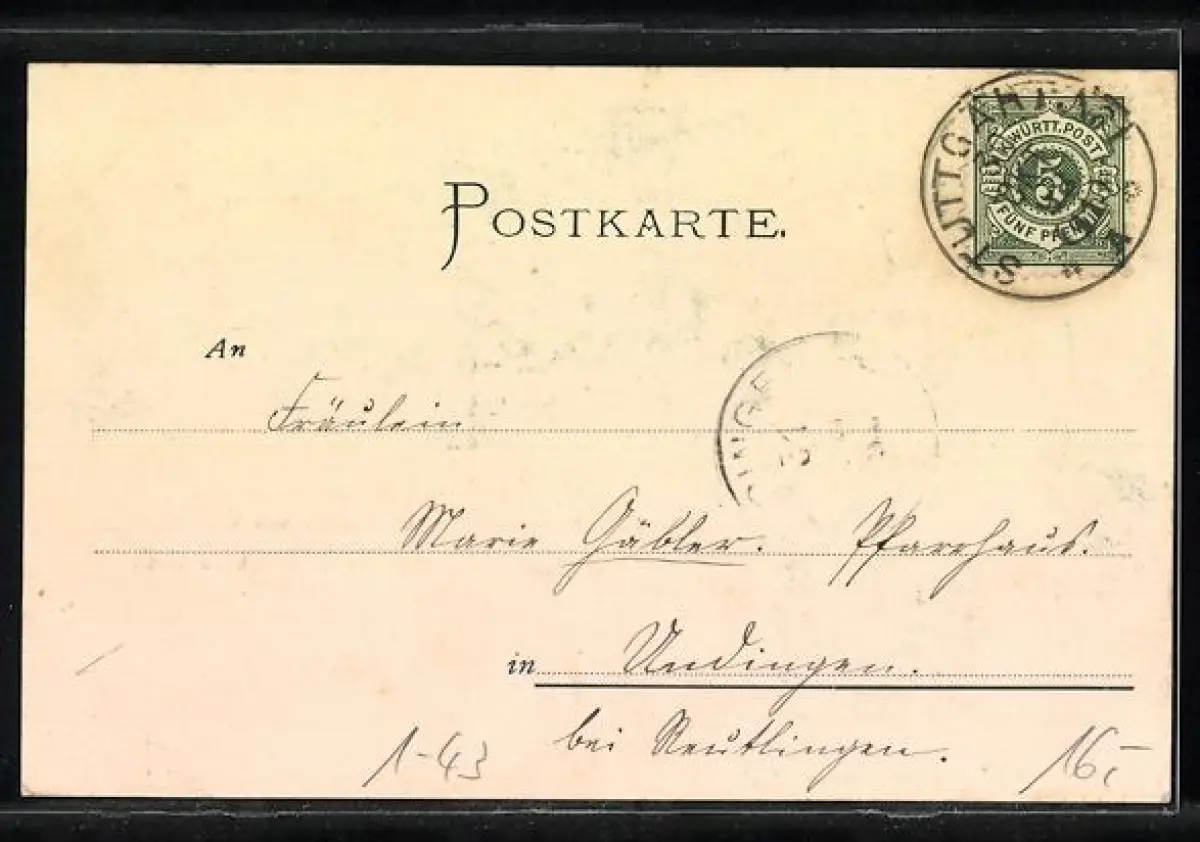 STUTTGART
K. WÜRTT. POST
5
FÜNF PFENNIG
POSTKARTE.
An
Fräulein
Marie Gäbler. Pfarrhaus.
in Undingen.
bei Reutlingen.
1-43
16,-